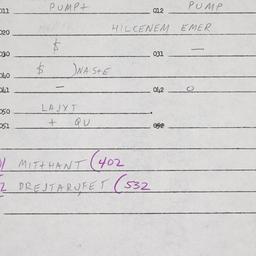 011 PUMP+ 012 PUMP
020 HILCENEM EMER
030 $ 031 —
040 $ )NASTE
041 — 042 O
050 LAJYT
051 + QU 052
MITHANT (402
DREJTARUFET (532